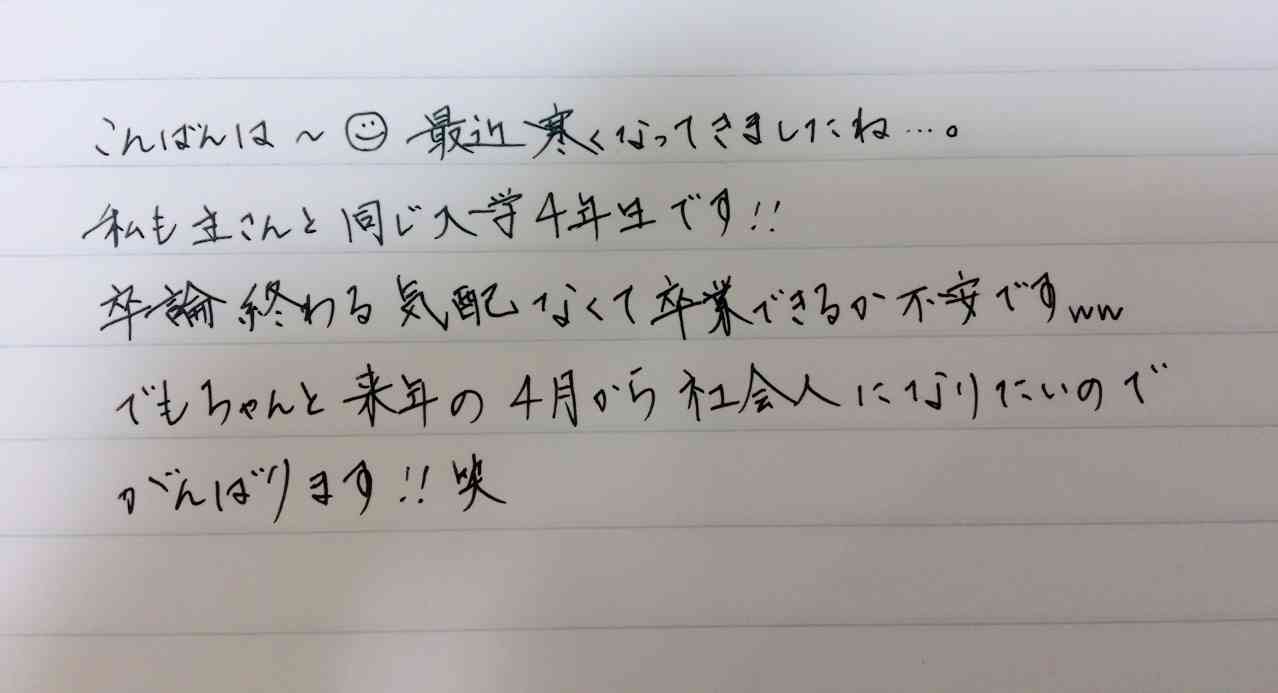 こんばんは～☺最近寒くなってきましたね…。
私も主さんと同じ大学4年生です!!
卒論終わる気配なくて卒業できるか不安ですww
でもちゃんと来年の4月から社会人になりたいので
がんばります!!笑